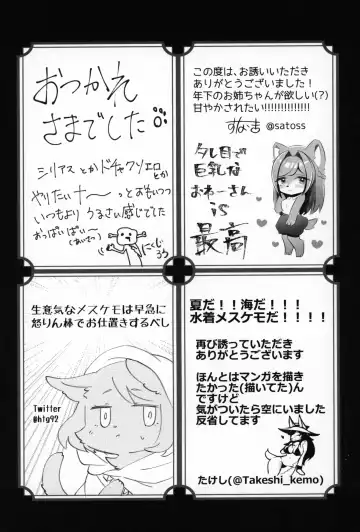 おつかれ
さまでした
シリアスとかドチャクソエロとか
やりたいナ〜っとおもいつつ
いつもよりうるさい感じででた
おっぱいぱい〜
この度は、お誘いいただき
ありがとうございました!
年下のお姉ちゃんが欲しい(?)
甘やかされたい!!!!!!!!!!!!!!
@satoss
タレ目で
巨乳な
おねーさん
is
最高
生意気なメスケモは早急に
怒りん棒でお仕置きするべし
Twitter
@htg92
夏だ!!海だ!!!
水着メスケモだ!!!!
再び誘っていただき
ありがとうございます
ほんとはマンガを描き
たかった(描いてた)ん
ですけど
気がついたら空にいました
反省してます
たけし(@Takeshi_kemo)